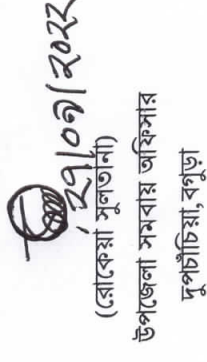 ২৭/০৭/২০২২
(রোকেয়া সুলতানা)
উপজেলা সমবায় অফিসার
দুপচাঁচিয়া, বগুড়া